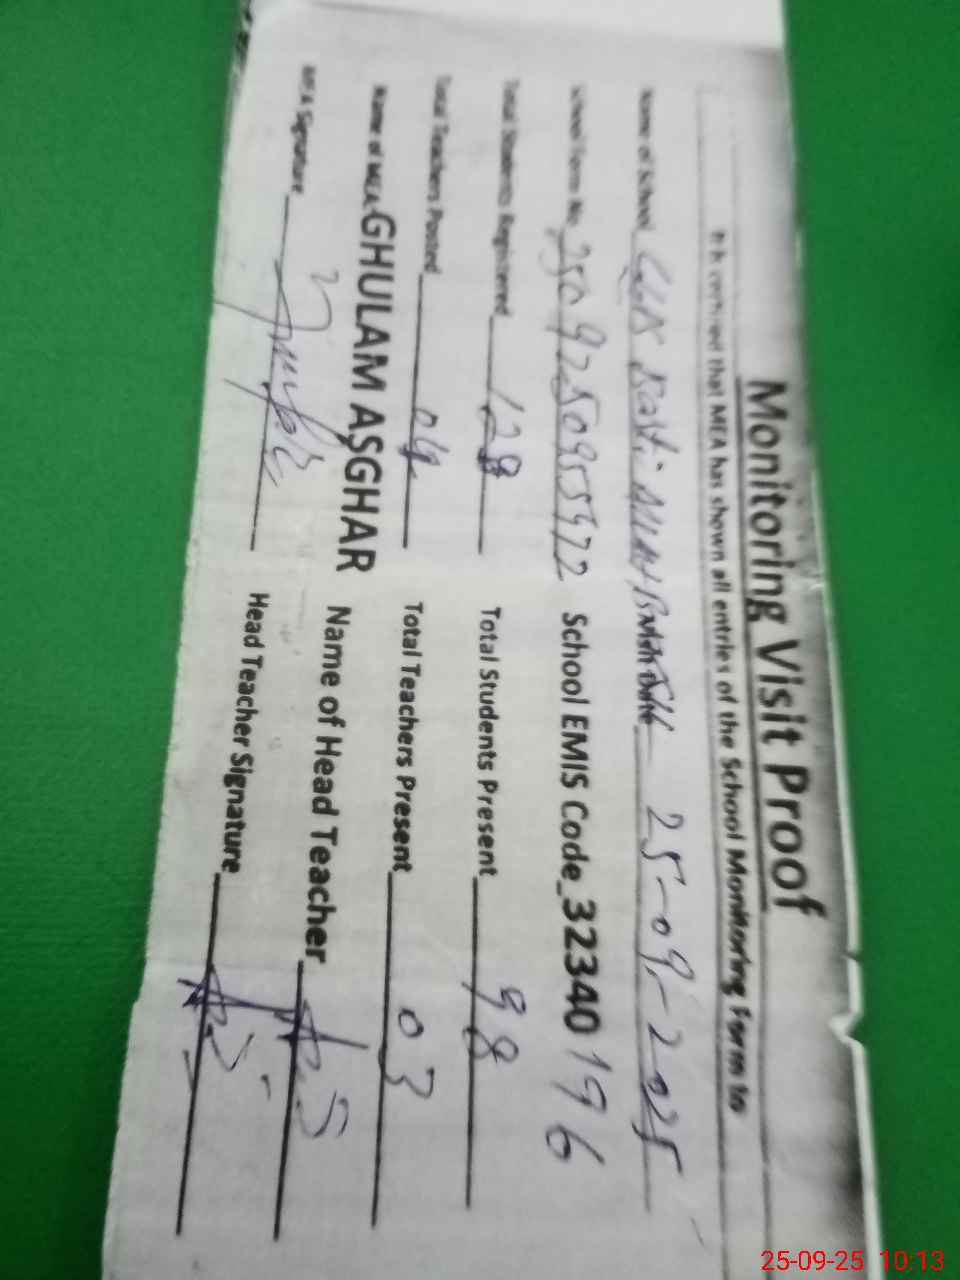 Monitoring Visit Proof
It is certified that MEA has shown all entries of the School Monitoring Form to
Name of School Basti Date 25-09-2025
School Form No. School EMIS Code_32340196
Total Students Registered 128 Total Students Present 98
Total Teachers Posted 04 Total Teachers Present 03
Name of MEA GHULAM ASGHAR Name of Head Teacher
MEA Signature Head Teacher Signature
25-09-25 10:13